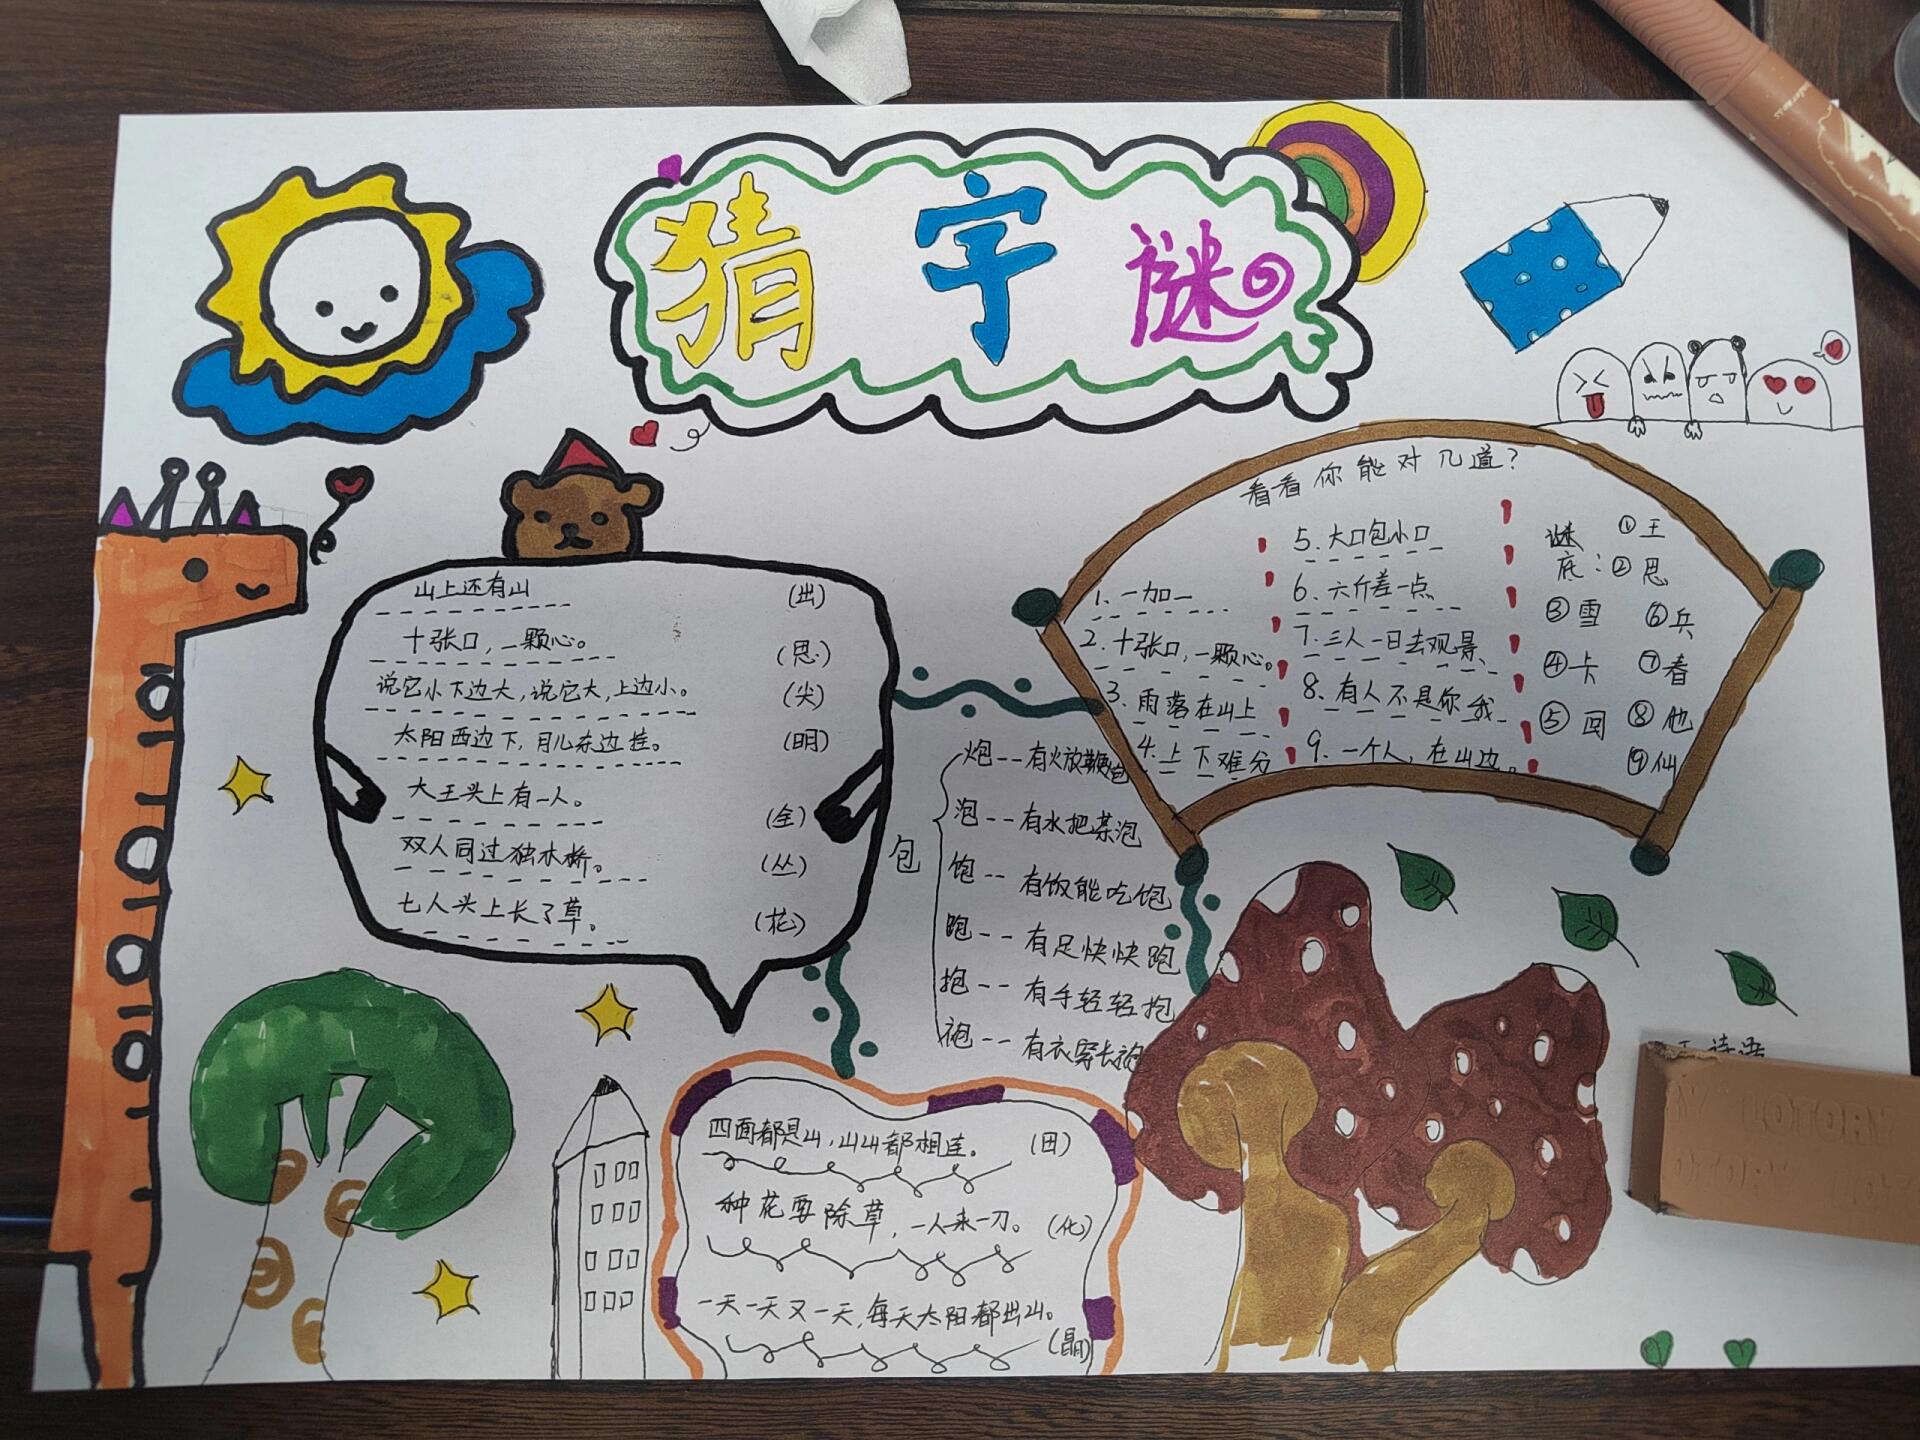 猜字谜
山上还有山 (出)
十张口，一颗心。 (思)
说它小下边大，说它大，上边小。 (尖)
太阳西边下，月儿东边挂。 (明)
大王头上有一人。 (全)
双人同过独木桥。 (丛)
七人头上长了草。 (花)
看看你能对几道？
1、一加一
2、十张口，一颗心。
3、雨落在山上
4、上下难分
5、大口包小口
6、六斤差一点
7、三人一日去观景、
8、有人不是你我
9、一个人，在山边。
谜底：①王
②思
③雪 ⑥兵
④卡 ⑦春
⑤回 ⑧他
⑨仙
包
炮--有火放鞭炮
泡--有水把茶泡
饱--有饭能吃饱
跑--有足快快跑
抱--有手轻轻抱
袍--有衣穿长袍
四面都是山，山山都相连。 (田)
种花要除草，一人来一刀。 (化)
一天一天又一天，每天太阳都出山。
(晶)
诗语
LOTORY